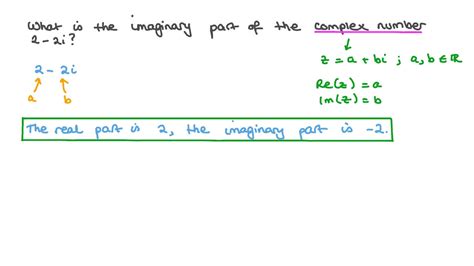 What is the imaginary part of the complex number
2-2i?
z = a + bi ; a, b ∈ ℝ
2 - 2i
a b
Re(z) = a
Im(z) = b
The real part is 2, the imaginary part is -2.